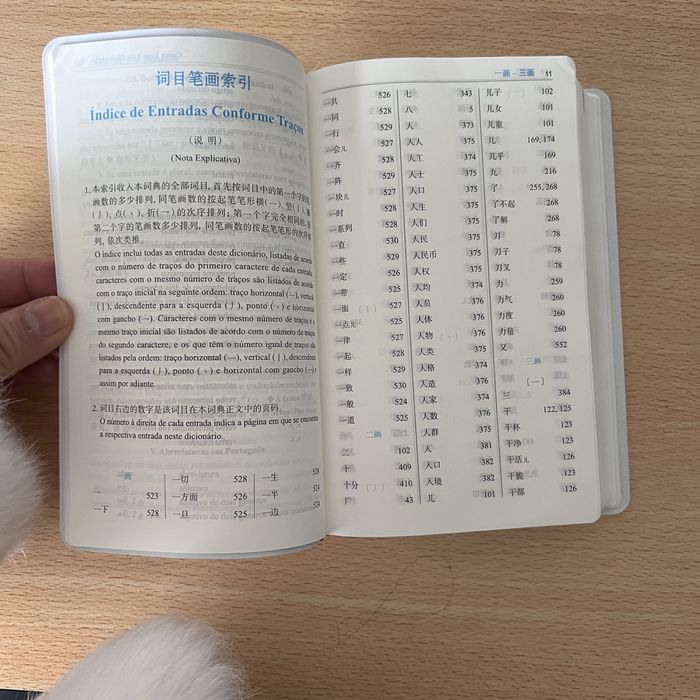 词目笔画索引
Índice de Entradas Conforme Traços
(说 明)
(Nota Explicativa)
1.本索引收入本词典的全部词目,首先按词目中的第一个字的笔
画数的多少排列,同笔画数的按起笔笔形横(一)、竖(丨)、撇
(丿)、点(丶)、折(乛)的次序排列;第一个字完全相同的,按
第二个字的笔画数多少排列,同笔画数的按起笔笔形的次序排
列,依次类推。
O índice inclui todas as entradas deste dicionário, listadas de acordo
com o número de traços do primeiro caractere de cada entrada.
caracteres com o mesmo número de traços são listados de acordo
com o traço inicial na seguinte ordem: traço horizontal (一), vertical
(丨), descendente para a esquerda (丿), ponto (丶) e horizontal
com gancho (乛). Caracteres com o mesmo número de traços e o
mesmo traço inicial são listados de acordo com o número de traços
do segundo caractere, e os que têm o número igual de traços são
listados pela ordem: traço horizontal (一), vertical (丨), descendente
para a esquerda (丿), ponto (丶) e horizontal com gancho (乛) e
assim por adiante.
2. 词目右边的数字是该词目在本词典正文中的页码。
O número à direita de cada entrada indica a página em que se encontra
a respectiva entrada neste dicionário.
一画
一 523
一下 528
一切 528
一方面 526
一旦 525
一生 528
一半 524
一边 524
一画 – 三画 11
一共 526
一同 528
一行 529
一会儿 527
一齐 528
一阵 529
一块儿 527
一时 528
一系列 528
一直 530
一些 529
一定 526
一带 525
一面 527
一点儿 525
一律 527
一起 528
一样 529
一致 530
一般 524
一道 525
二画
二 102
十 409
十分 410
厂 43
七 343
八 5
〔丿〕
人 373
人人 375
人工 374
人士 375
人口 375
人生 375
人们 375
人民 375
人民币 375
人权 375
人均 374
人员 376
人体 376
人物 376
人类 375
人格 374
人造 376
人家 374
人数 376
人群 375
入 381
入口 382
入境 382
儿 101
儿子 102
儿女 101
儿童 101
几 169, 174
几乎 169
九 216
〔乛〕
了 255, 268
了不起 268
了解 268
刀 78
刀子 78
刀叉 78
力 259
力气 260
力度 260
力量 260
又 552
三画
〔一〕
三 384
干 122, 125
干杯 123
干净 123
干活儿 126
干脆 123
干部 126